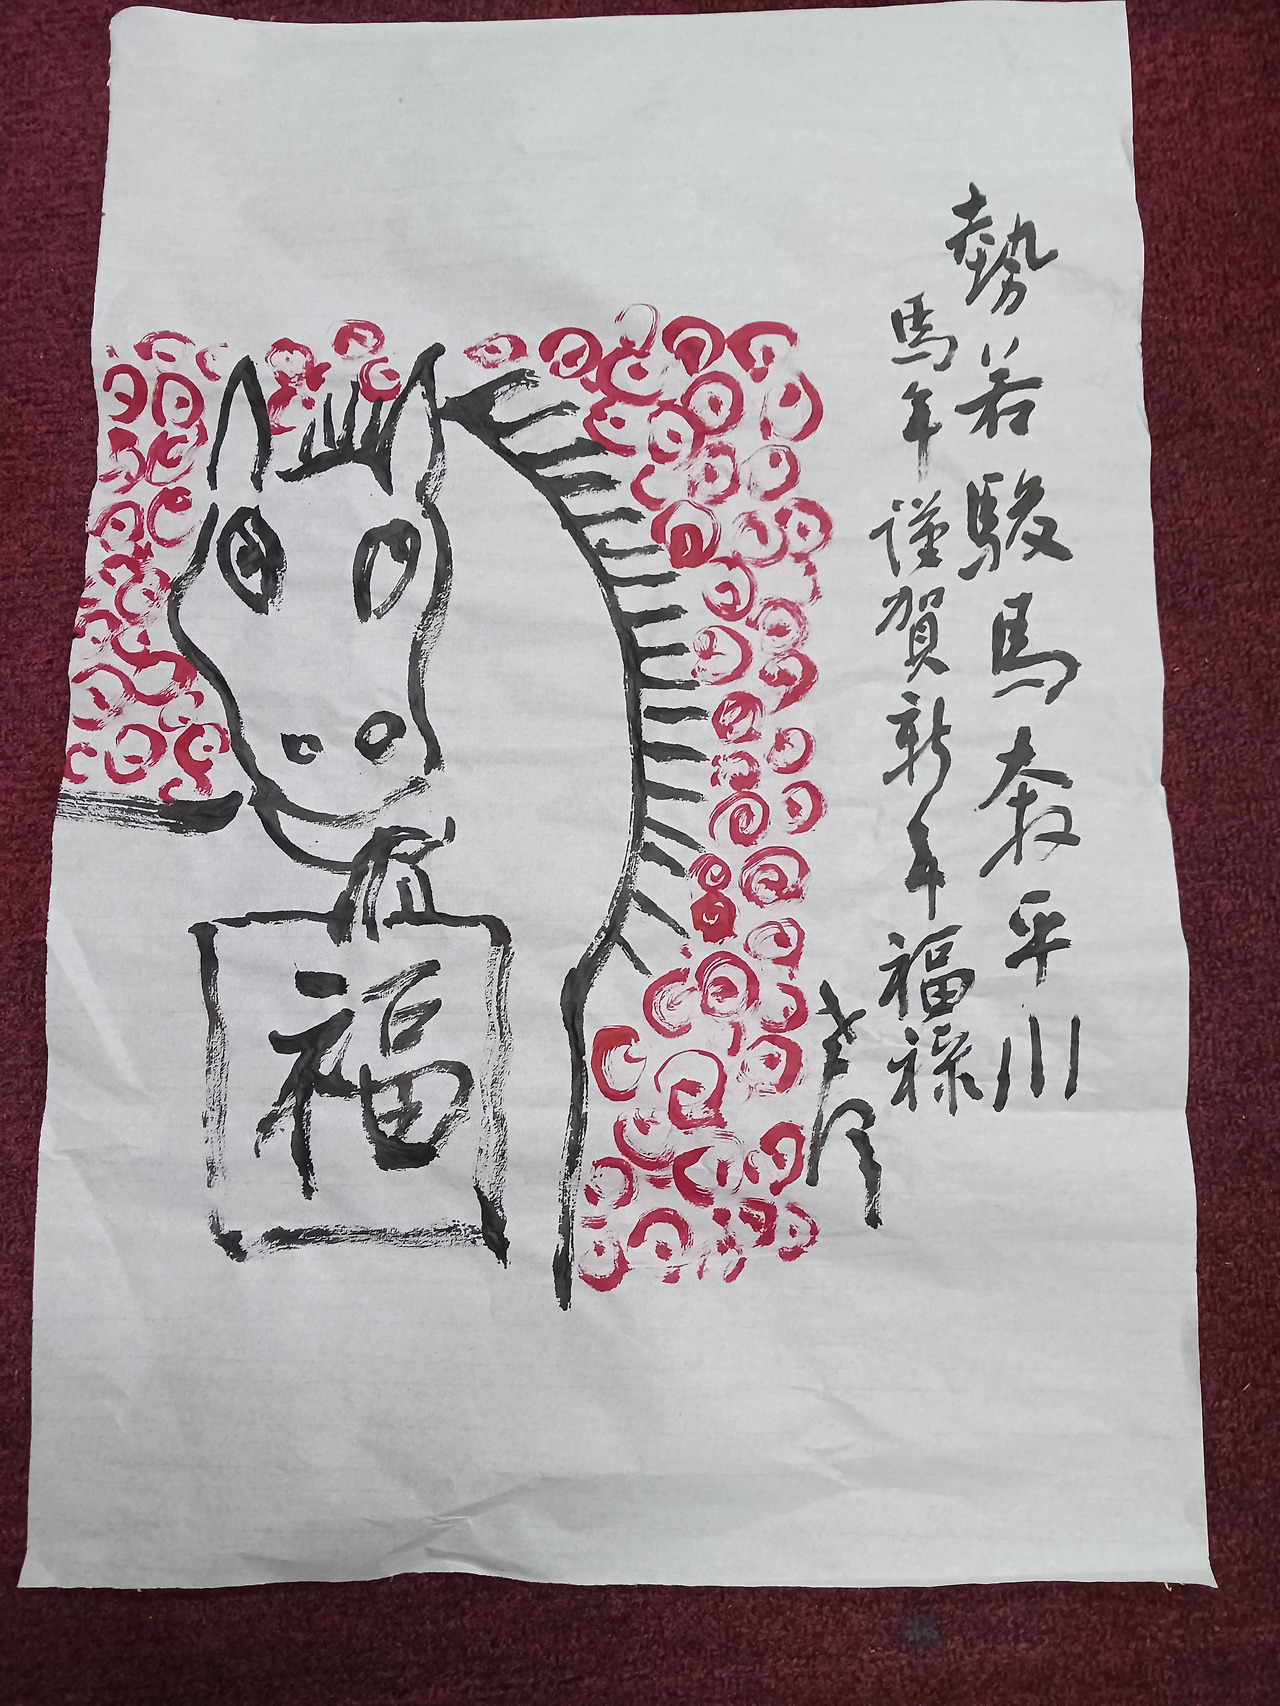 勢若駿馬奔平川
馬年謹賀新年福祿
福